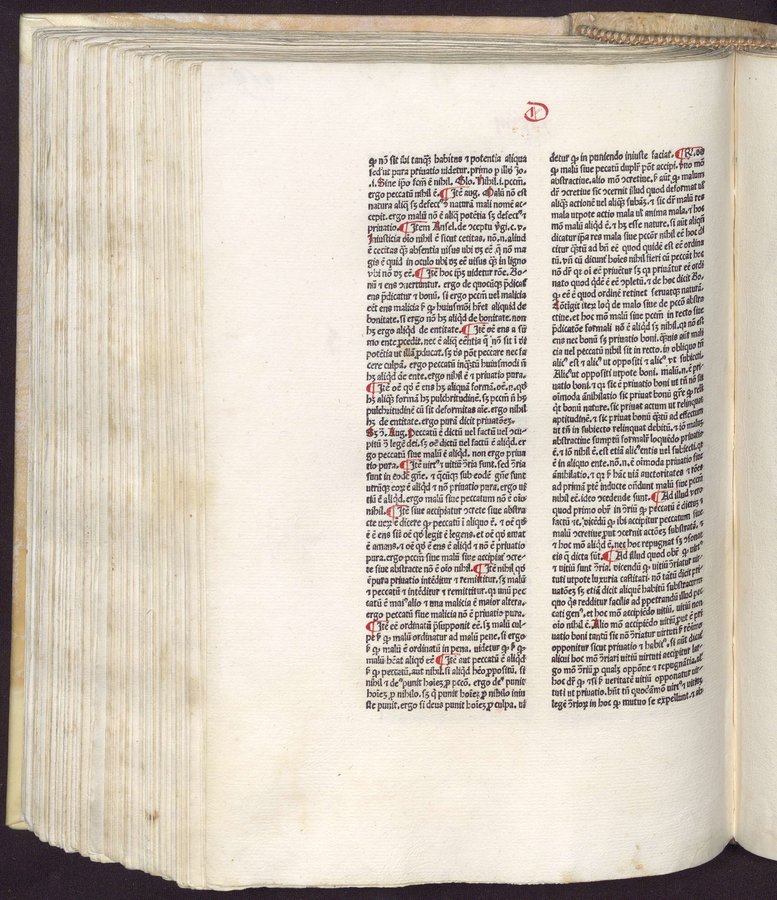 D
ꝙ nõ sit ibi tanq̃ habitus ⁊ potentia aliqua
sed ut pura priuatio uidetur. primo p̱ illð Jo.
.i. Sine ip̃o factũ ẽ nihil. Glo. Nihil .i. peccm̃.
ergo peccatũ nihil ẽ. ¶ Jtẽ aug. Malũ nõ est
natura aliq̃ sꝫ defectꝰ naturã mali nomẽ ac-
cepit. ergo malũ nõ ẽ aliq̃ potẽtia sꝫ defectꝰ ⁊
priuatio. ¶ Jtem Ansel. de ꝯceptu v̓gi. c. v.
Jniusticia oĩo nihil ẽ sicut cecitas. nõ .n. aliud
ẽ cecitas q̃ absentia uisus ubi dꝫ eẽ. q̃ nõ ma
gis ẽ quid in oculo ubi dꝫ eẽ uisus q̃ in ligno
vbi nõ dꝫ eẽ. ¶ Jtẽ hoc ip̃ꝫ uidetur rõe. Bo-
nũ ⁊ ens ꝯuertuntur. ergo de quocũqꝫ p̃dicat̃
ens p̃dicatur ⁊ bonũ. si ergo peccm̃ uel malicia
eẽt ens malicia ꝉ ꝙ huiusmõi hr̃et aliquid de
bonitate. si ergo nõ hꝫ aliqd̓ de bonitate. non
hꝫ ergo aliqd̓ de entitate. ¶ Jtẽ oẽ ens a sũ
mo ente p̱cedit. nec ẽ aliq̃ eẽntia q̃ nõ sit ĩ dĩ
potẽtia ut illã ꝓducat. sꝫ dꝰ nõ põt peccare nec fa
cere culpã. ergo peccatũ inq̃tũ huiusmodi nõ
hꝫ aliqd̓ de ente. ergo nihil ẽ ⁊ priuatio pura.
¶ Jtẽ oẽ qð ẽ ens hꝫ aliquã formã. oẽ .n. qð
hꝫ aliq̃ formã hꝫ pulchritudinẽ. sꝫ peccm̃ nõ hꝫ
pulchritudinẽ cũ sit deformitas aĩe. ergo nihil
hꝫ de entitate. ergo purã dicit priuatõeꝫ.
Sꝫ ꝯ̃. Aug. Peccatũ ẽ dictũ uel factũ uel ꝯcu-
pitũ ꝯ̃ legẽ dei. sꝫ oẽ dictũ uel factũ ẽ aliqd̓. er
go peccatũ siue malũ ẽ aliqd̓. non ergo priua
tio pura. ¶ Jtẽ uirtꝰ ⁊ uitiũ ꝯ̃ria sunt. sed ꝯ̃ria
sunt in eodẽ gñe. ⁊ q̃cũqꝫ sub eodẽ gñe sunt
utrũqꝫ eoꝝ ẽ aliqd̓ ⁊ nõ priuatio pura. ergo ui
tiũ ẽ aliqd̓. ergo malũ siue peccatum nõ ẽ oĩo
nihil. ¶ Jtẽ siue accipiatur ꝯcrete siue abstra
cte veꝝ ẽ dicere ꝙ peccatũ ĩ aliquo ẽ. ⁊ oẽ qð
ẽ ĩ ens siẽ oẽ qð legit ẽ legens. et oẽ qð amat
ẽ amans. ⁊ oẽ qð ẽ ens ẽ aliqd̓ ⁊ nõ ẽ priuatio
pura. ergo peccm̃ siue malũ siue accipiat̃ ꝯcre-
te siue abstracte nõ ẽ oĩo nihil. ¶ Jtẽ nihil qð
ẽ pura priuatio intẽditur ⁊ remittitur. sꝫ malũ
⁊ peccatũ ⁊ intẽditur ⁊ remittitur. qꝛ unũ pec
catũ ẽ maiꝰ alio ⁊ una malicia ẽ maior altera.
ergo peccatũ siue malicia nõ ẽ priuatio pura.
¶ Jtẽ eẽ ordinatũ p̃supponit eẽ. sꝫ malũ cul-
pe ꝉ ꝙ malũ ordinatur ad malũ pene. si ergo
ꝉ ꝙ malũ ẽ ordinatũ in pena. uidetur ꝙ ꝉ ꝙ
malũ hẽat aliqð eẽ ¶ Jtẽ aut peccatũ ẽ aliqd̓
ꝉ ꝙ peccatũ. aut nihil. si aliqd̓ hẽo ꝓpositũ. si
nihil ⁊ deꝰ punit hoĩeꝫ ꝓ pccõ. ergo deꝰ punit
hoĩeꝫ ꝓ nihilo. sꝫ q̃ punit hoĩeꝫ ꝓ nihilo iniu
ste punit. ergo si deus punit hoĩeꝫ ꝓ culpa. ui
detur ꝙ in puniendo iniuste faciat. ¶ R.
ꝙ malũ siue pecatũ duplr̃ põt accipi. vno mõ
abstractiue. alio mõ ꝯcretiue. ꝉ aũt ꝙ malum
dr̃ ꝯcretiue sic ꝯcernit illud quod deformat̃ ut
aliq̃ actionẽ uel aliq̃ subãꝫ. ⁊ sic dr̃ malũ res
mala utpote actio mala uel anima mala. ⁊ hoc
mõ malũ aliqd̓ ẽ. ⁊ hꝫ esse nature. si aũt aliqñ
dicatur ip̃a res mala siue peccm̃ nihil eẽ hoc di
citur q̃tũ ad bñ eẽ quod quidẽ est eẽ ordina
tũ. vñ cũ dicunt̃ hoĩes nihil fieri cũ peccẽt hoc
nõ dr̃ qꝛ oĩ eẽ priuẽtur sꝫ qꝛ priuãtur eẽ ordi
nato quod qdẽ ẽ eẽ ꝯpletũ. ⁊ de hoc dicit Bo.
ꝙ eẽ ẽ quod ordinẽ retinet seruatqꝫ naturã.
Cõtigit iteꝝ loq̃ de malo siue de pccõ abstra
ctiue. et hoc mõ malũ siue pccm̃ in recto siue
p̃dicatõe formali nõ ẽ aliqd̓ sꝫ nihil. qꝛ nõ est
ens nec bonũ sꝫ priuatio boni. q̃uis aũt mali
cia uel peccatũ nihil sit in recto. in obliquo tñ
alicꝰ est ⁊ alicꝰ ut oppositi ⁊ alicꝰ ut subiecti.
Alicꝰ ut oppositi utpote boni. malũ .n. ẽ pri
uatio boni ⁊ qꝛ sic ẽ priuatio boni ut tñ nõ sit
oĩmoda ãnihilatio sic priuat bonũ gr̃e ꝙ reli
q̃t bonũ nature. sic priuat actum ut relinquat
aptitudinẽ. ⁊ sic priuat boni q̃tũ ad effectum
ut tñ in subiecto relinquat debitũ. ⁊ iõ malũ
abstractiue sumptũ formalr̃ loquẽdo priuatio
ẽ. ⁊ iõ nihil ẽ. est etiã alicꝰ entis uel subiecti. qꝛ
ẽ in aliquo ente. nõ .n. ẽ oĩmoda priuatio siue
ãnihilatio. ⁊ qꝛ ꝉ hãc uiã auctoritates ⁊ rões
ad primã ptẽ inducte oñdunt malũ siue pccm̃
nihil eẽ. iõeo ꝯcedende sunt. ¶ Ad illud vero
quod primo obr̃ in ꝯ̃riũ ꝙ peccatũ ẽ dictuꝫ ⁊
factũ ⁊c̃. vicẽdũ ꝙ ibi accipitur peccatum siue
malũ ꝯcretiue. put ꝯcernit actõeꝫ substratã. ⁊
⁊ hoc mõ aliqd̓ ẽ. nec hoc repugnat sꝫ ꝯsonat
eis q̃ dicta sũt. ¶ Ad illud quod obr̃ ꝙ uirtꝰ
⁊ uitiũ sunt ꝯ̃ria. vicendũ ꝙ uitiũ ꝯ̃riatur vir-
tuti utpote luxuria castitati. nõ tãtũ dicit pri-
uatõeꝫ sꝫ etiã dicit aliquẽ habitũ substractũ ex
quo q̃s redditur facilis ad p̱petrandũ illud pec
cati genꝰ. et hoc mõ accipiẽdo uitiũ. uitiũ non
oĩo nihil ẽ. Alio mõ accipiẽdo uitiũ put ẽ pri
uatio boni tantũ sic nõ ꝯ̃riatur uirtuti ꝉ rẽ imo
opponitur sicut priuatio ⁊ habitꝰ. si aũt dicat̃
alicui hoc mõ ꝯ̃rari uitiũ uirtuti accipitur lar-
go mõ ꝯ̃riũ ꝓ qualꝫ oppõne ⁊ repugnãtia. et
hoc dr̃ ꝙ ⁊si ꝉ veritatẽ uitiũ opponatur uir-
tuti ut priuatio. hñt tñ quodãmõ uirtꝰ ⁊ uitiũ
legẽ ꝯ̃rioꝝ in hoc ꝙ mutuo se expellunt. ⁊ ab